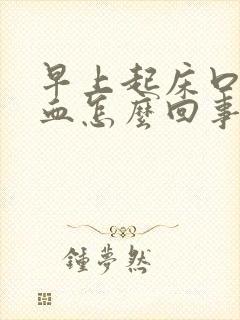 早上起床口
血怎麼回事
鍾夢然